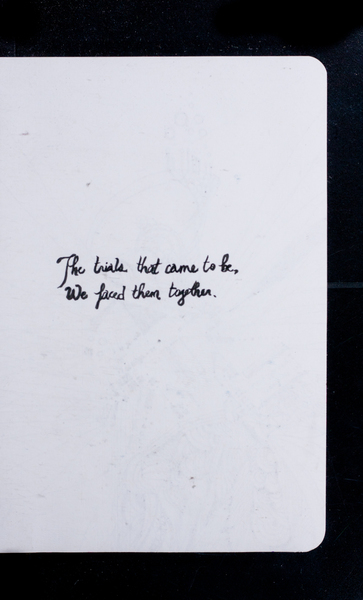 The trials that came to be,
We faced them together.